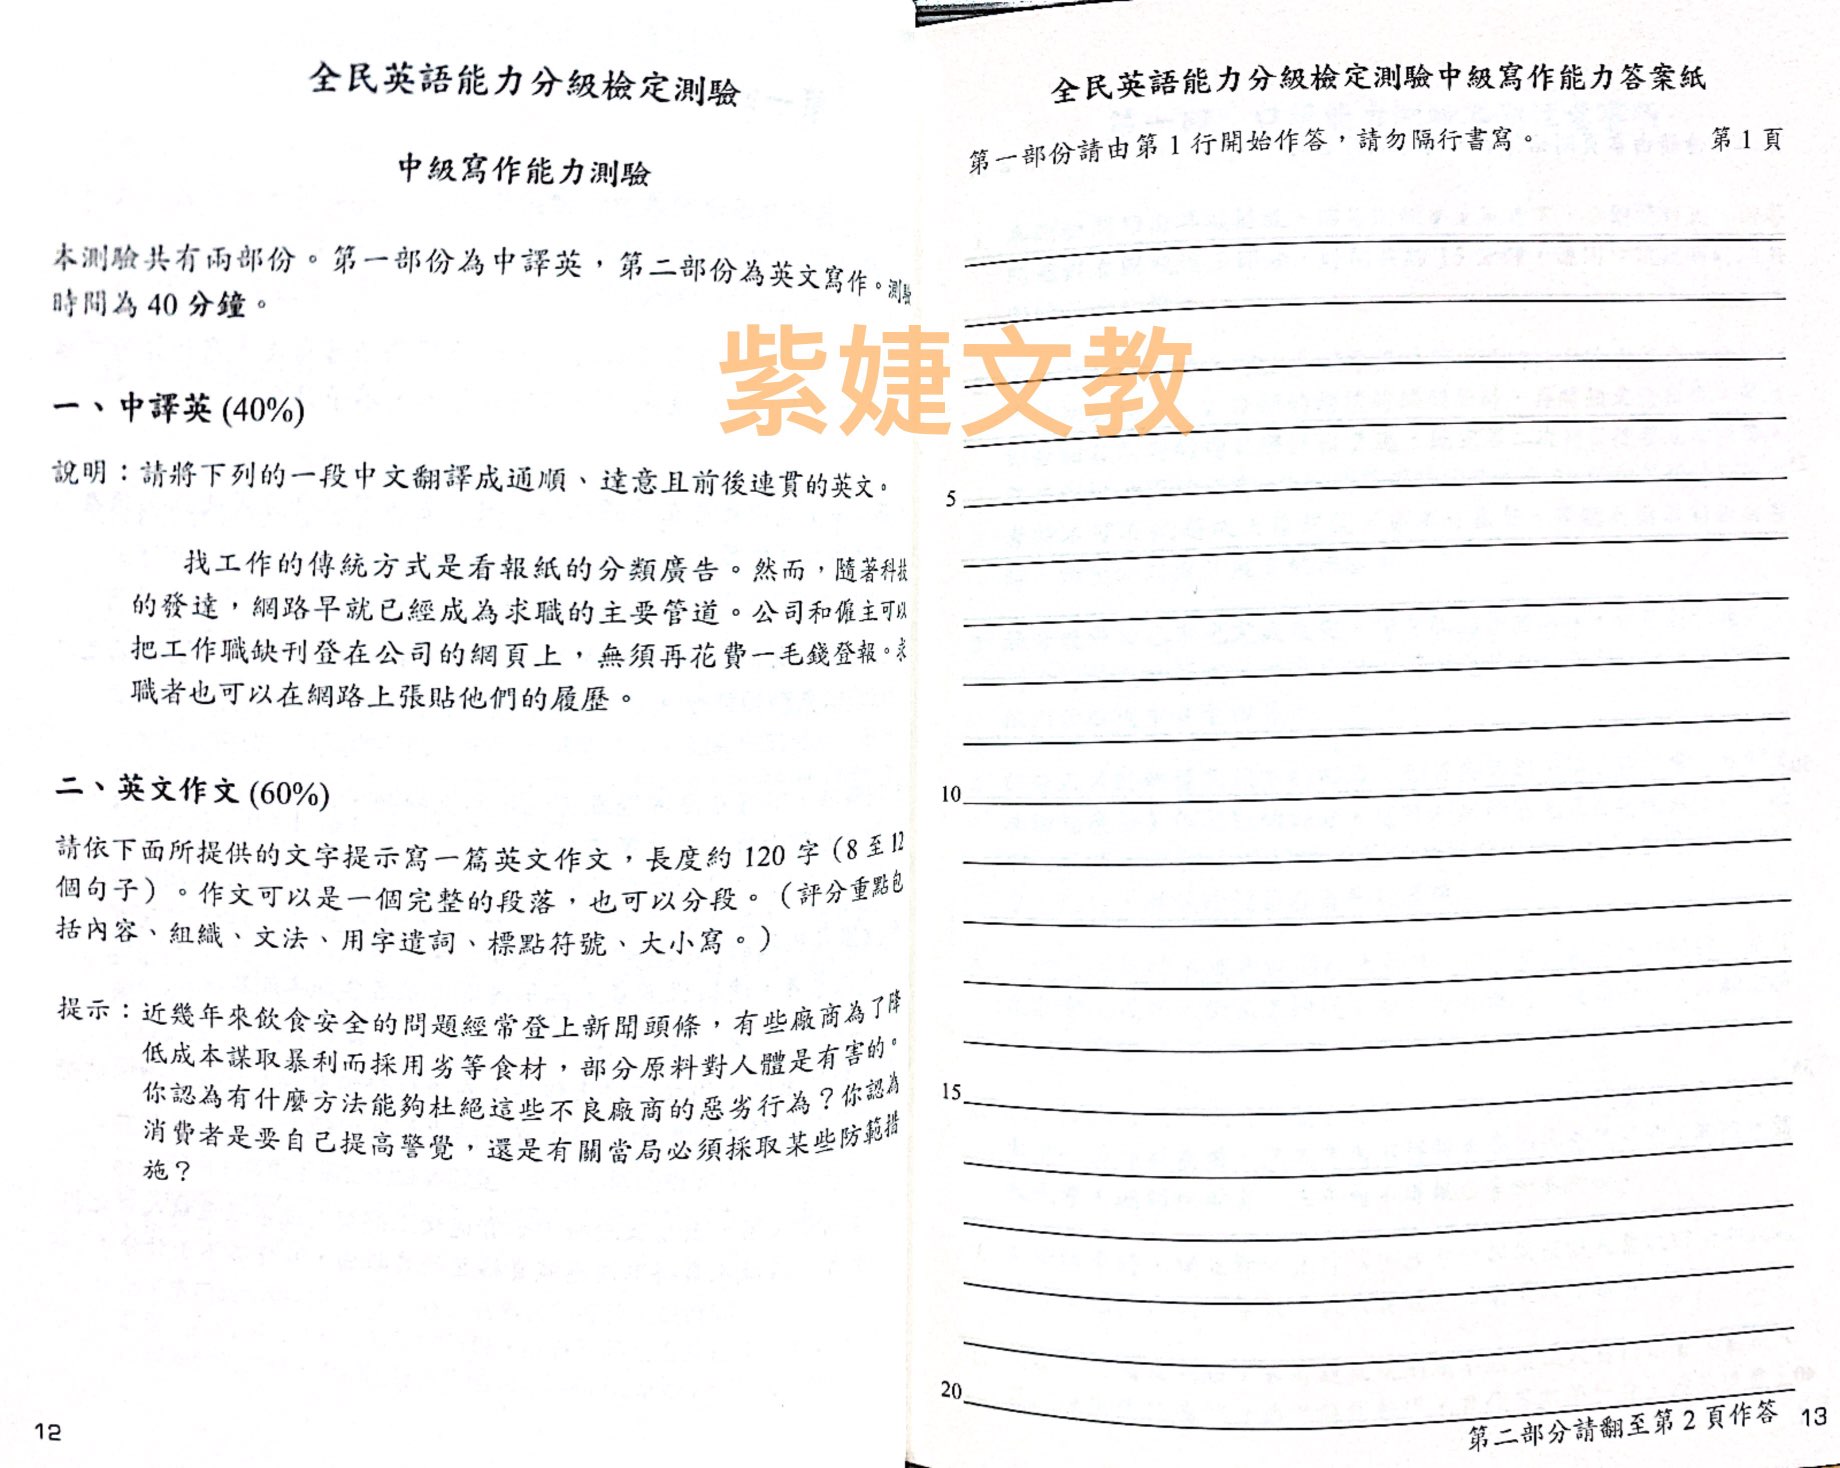 全民英語能力分級檢定測驗
中級寫作能力測驗
本測驗共有兩部份。第一部份為中譯英,第二部份為英文寫作。測驗
時間為 40 分鐘。
一、中譯英 (40%)
說明:請將下列的一段中文翻譯成通順、達意且前後連貫的英文。
找工作的傳統方式是看報紙的分類廣告。然而,隨著科技
的發達,網路早就已經成為求職的主要管道。公司和僱主可以
把工作職缺刊登在公司的網頁上,無須再花費一毛錢登報。求
職者也可以在網路上張貼他們的履歷。
二、英文作文 (60%)
請依下面所提供的文字提示寫一篇英文作文,長度約 120 字(8 至 12
個句子)。作文可以是一個完整的段落,也可以分段。(評分重點包
括內容、組織、文法、用字遣詞、標點符號、大小寫。)
提示:近幾年來飲食安全的問題經常登上新聞頭條,有些廠商為了降
低成本謀取暴利而採用劣等食材,部分原料對人體是有害的。
你認為有什麼方法能夠杜絕這些不良廠商的惡劣行為?你認為
消費者是要自己提高警覺,還是有關當局必須採取某些防範措
施?
12
紫婕文教
全民英語能力分級檢定測驗中級寫作能力答案紙
第一部份請由第 1 行開始作答,請勿隔行書寫。 第 1 頁
5
10
15
20
第二部分請翻至第 2 頁作答 13